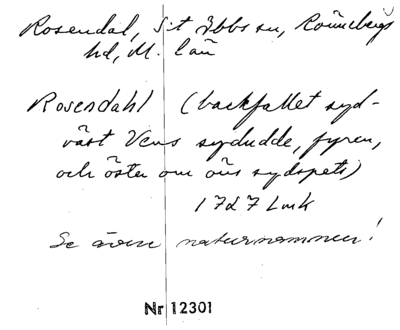 Rosendal, S:t Ibbs sn, Rönnebergs
hd, M. län
Rosendahl (backfallet syd-
väst Vens sydudde, fyren,
och öster om öns sydspets)
1727 Lmk
Se även naturnamnen!
Nr 12301